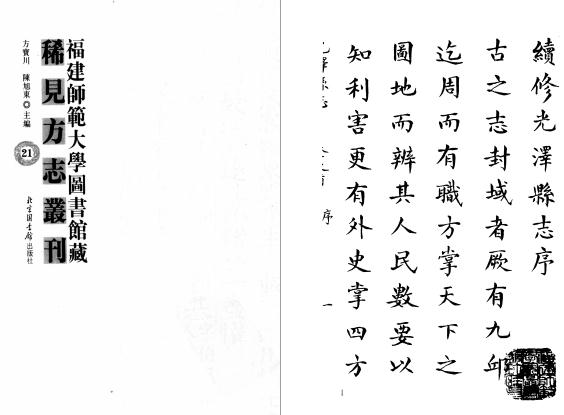 福建師範大學圖書館藏
稀見方志叢刊
21
方寶川 陳旭東 主編
北京圖書館出版社
續修光澤縣志序
古之志封域者厥有九邱
迄周而有職方掌天下之
圖地而辨其人民數要以
知利害更有外史掌四方
光澤縣志
序
一
1